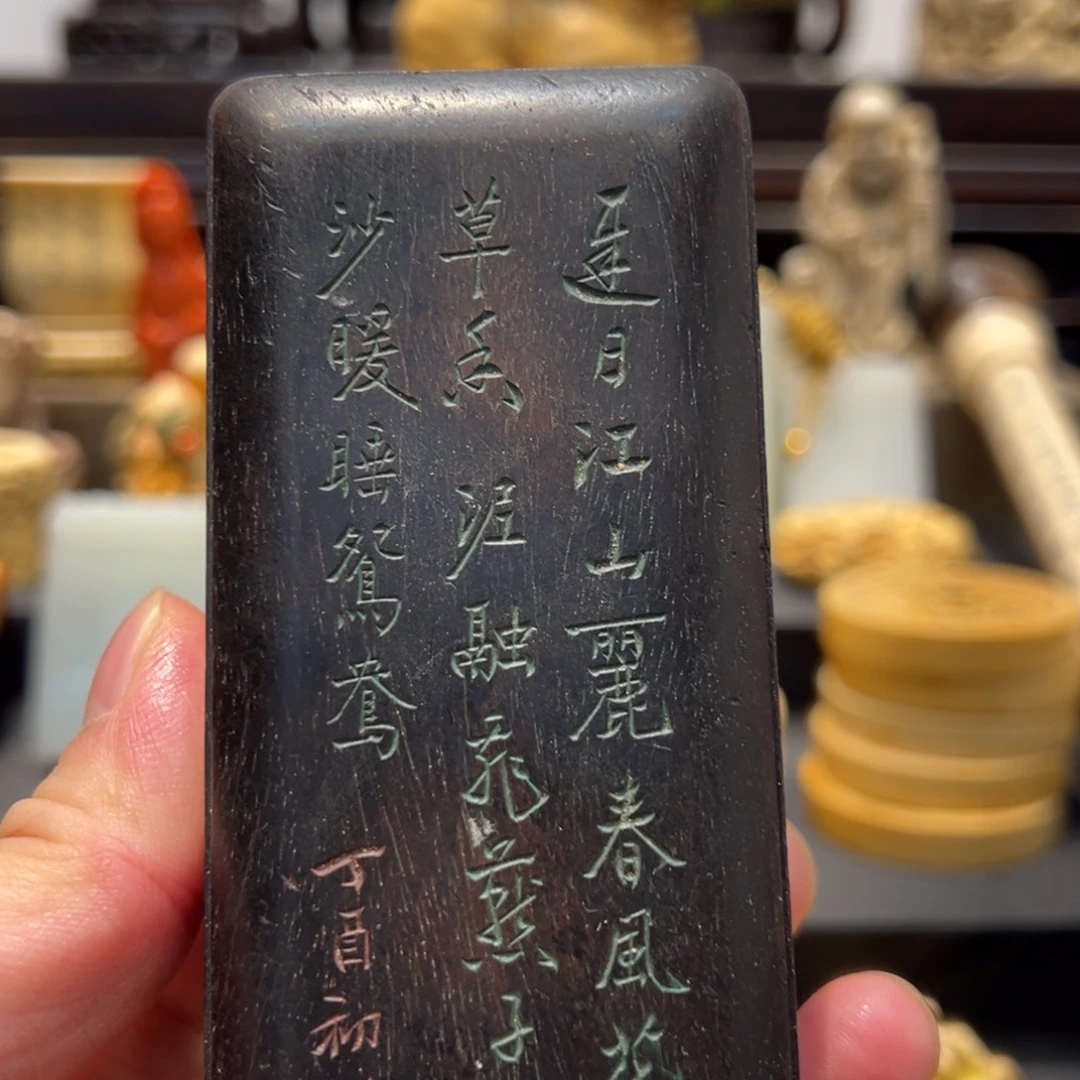 遅日江山麗春風花
草香泥融飛燕子
沙暖睡鴛鴦丁酉初